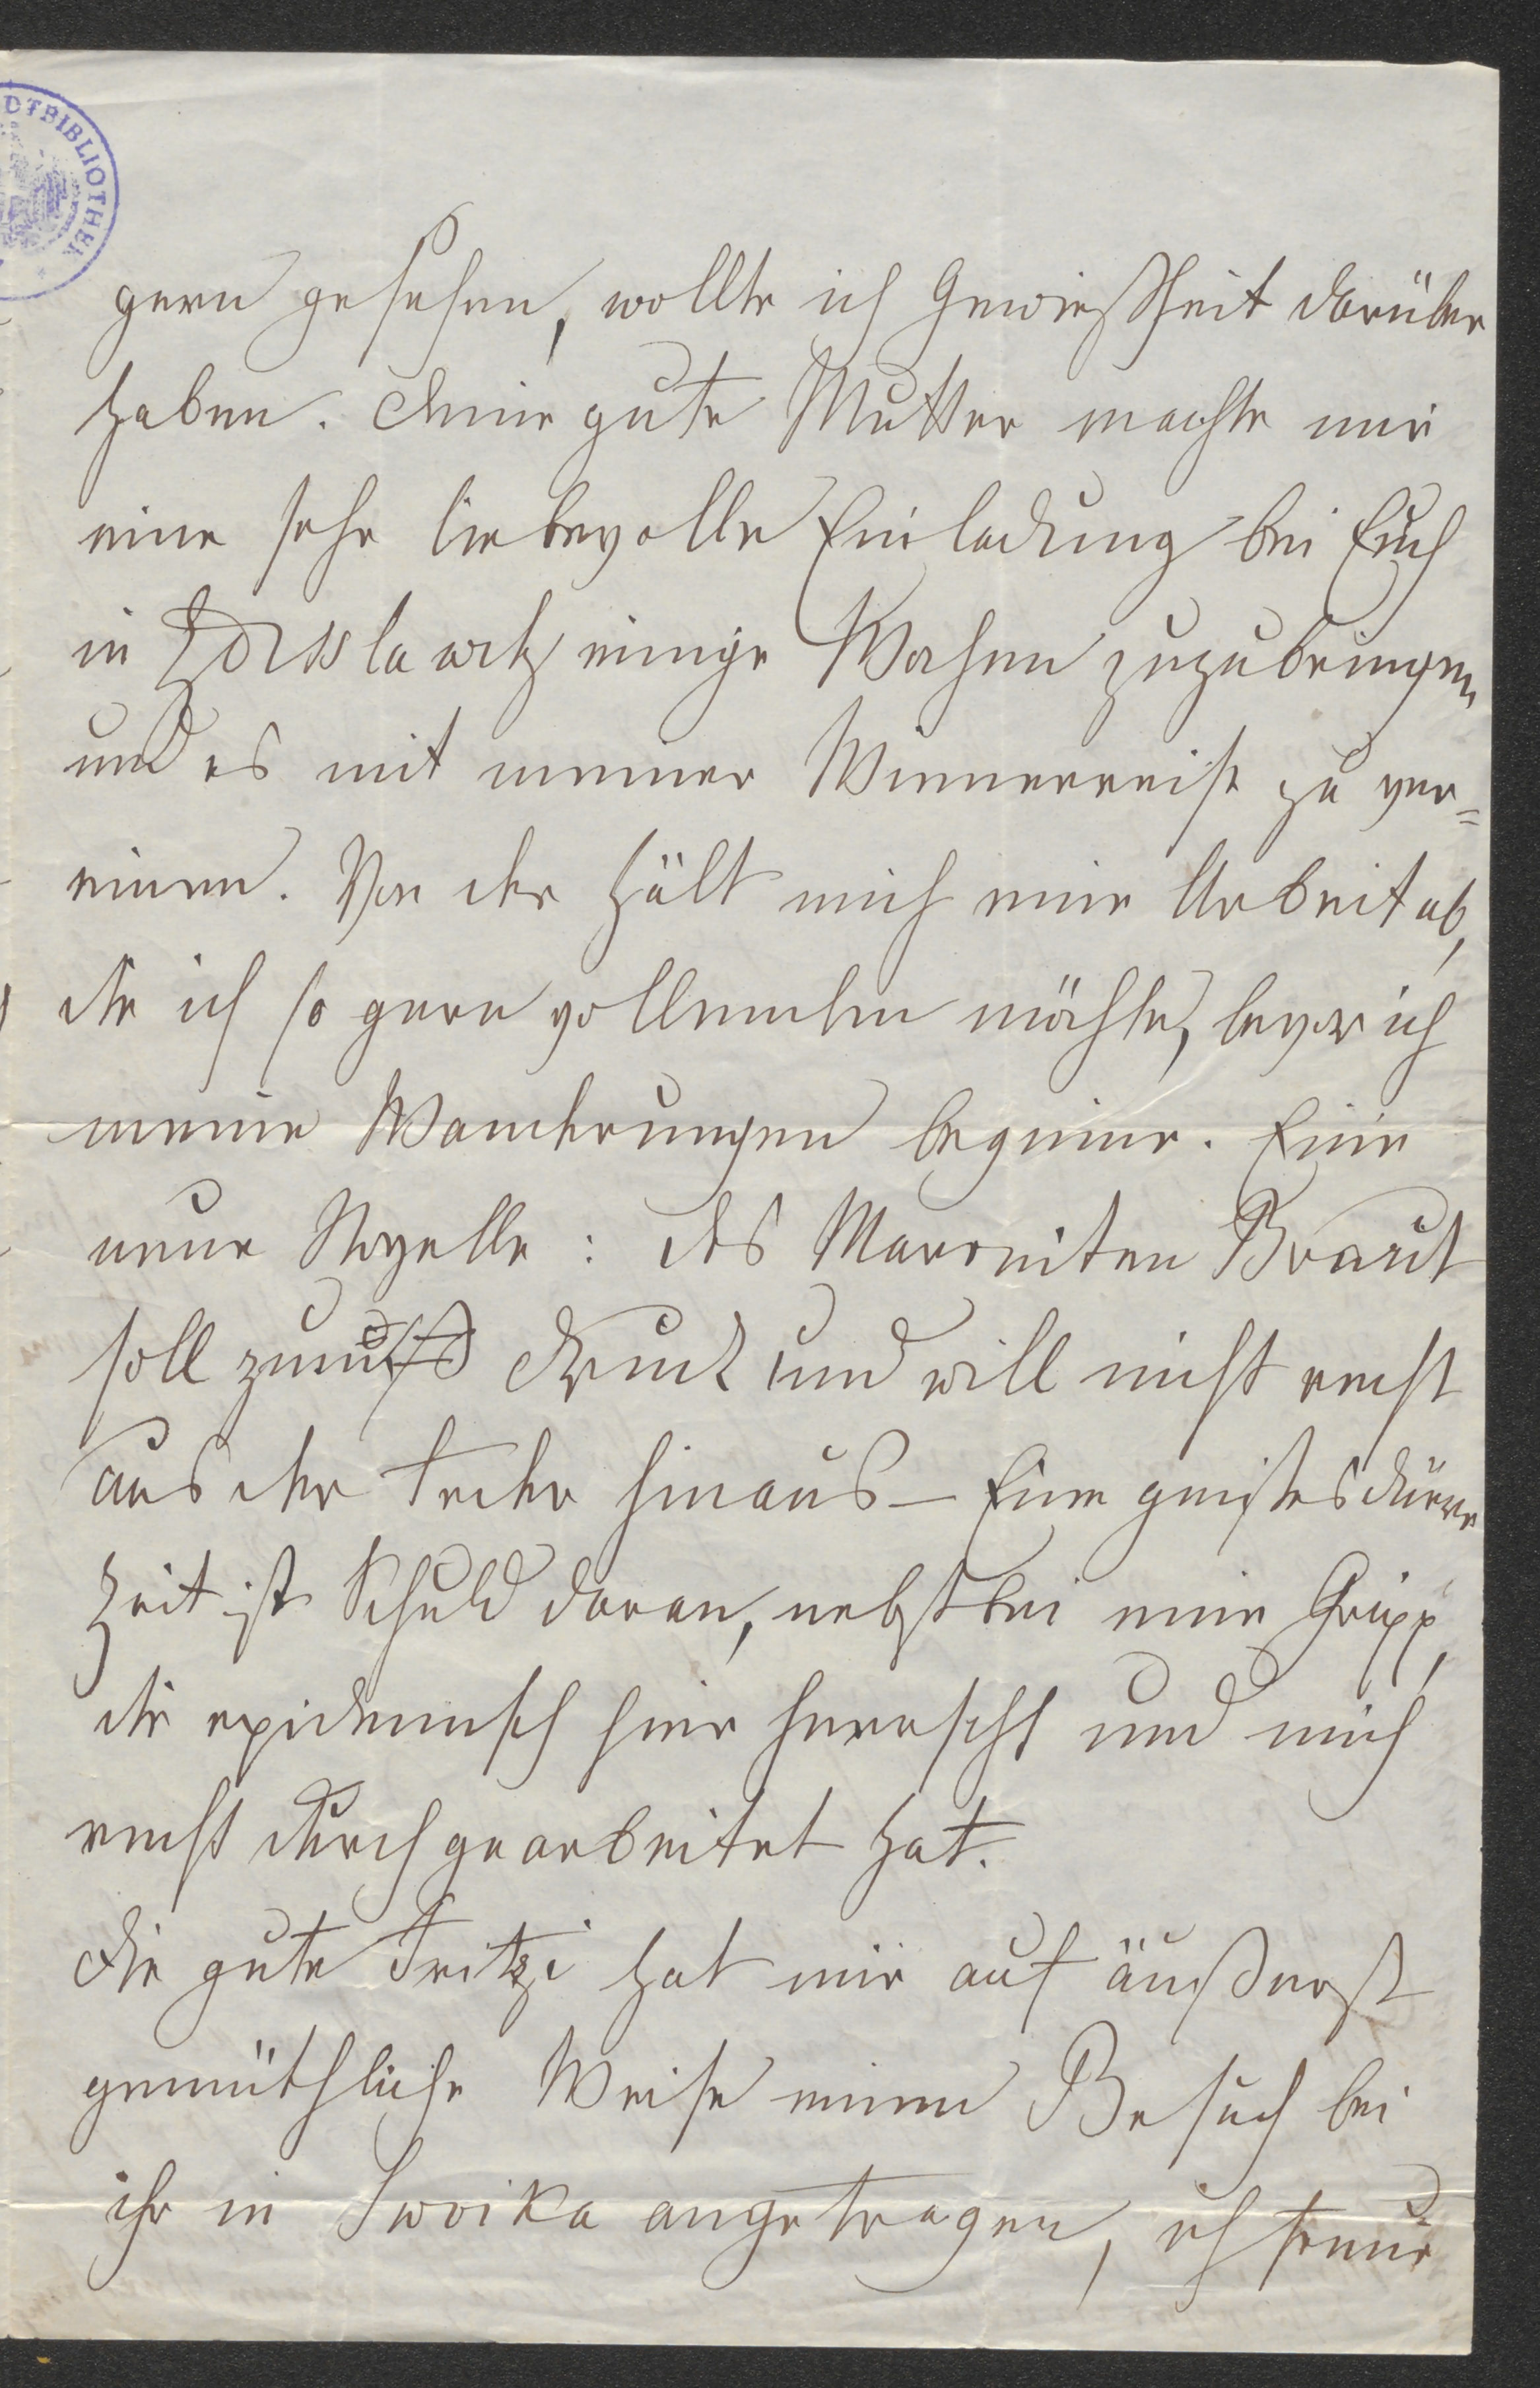 DTBIBLIOTHEK
gern gesehen, wollte ich Gewißheit darüber
haben. Deine gute Mutter machte mir
eine sehr liebevolle Einladung bei Euch
in Zdisslawitz einige Wochen zuzubringen,
und es mit meiner Wienerreise zu ver=
einen. Vor der Hält mich eine Arbeit ab,
die ich so gern vollenden möchte, bevor ich
meine Wanderungen beginne. Eine
neue Novelle: des Maroniten Braut
soll zum Druck und will nicht recht
aus der Feder hinaus – Eine geistesdürre
Zeit ist Schuld daran, nebstbei eine Gripp,
die epidemisch hier herrscht und mich
recht durchgearbeitet hat.
Die gute Fritzi hat mir auf äußerst
gemüthliche Weise einen Besuch bei
ihr in Swoika angetragen, ich freue